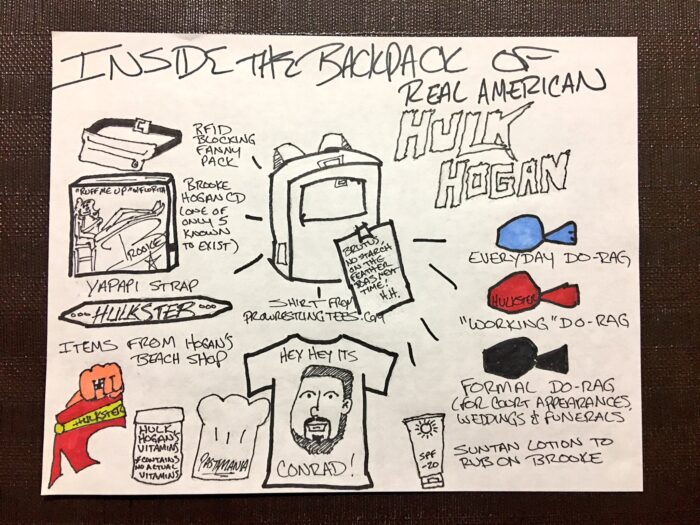 INSIDE THE BACKPACK OF
REAL AMERICAN
HULK
HOGAN
RFID
BLOCKING
FANNY
PACK
"RUFF ME UP" W/FLORITA
BROOKE
BROOKE
HOGAN CD
(ONE OF
ONLY 5
KNOWN
TO EXIST)
YAPAPI STRAP
HULKSTER
ITEMS FROM HOGAN'S
BEACH SHOP
HULKSTER
HULK
HOGAN'S
VITAMINS
*CONTAINS
NO ACTUAL
VITAMINS
PASTAMANIA
BRUTUS,
NO STARCH
ON THE
FEATHER
BOAS NEXT
TIME!
H.H.
SHIRT FROM
PROWRESTLINGTEES.COM
HEY HEY ITS
CONRAD!
EVERYDAY DO-RAG
HULKSTER
"WORKING" DO-RAG
FORMAL DO-RAG
(FOR COURT APPEARANCES,
WEDDINGS & FUNERALS
SPF
-20
SUNTAN LOTION TO
RUB ON BROOKE